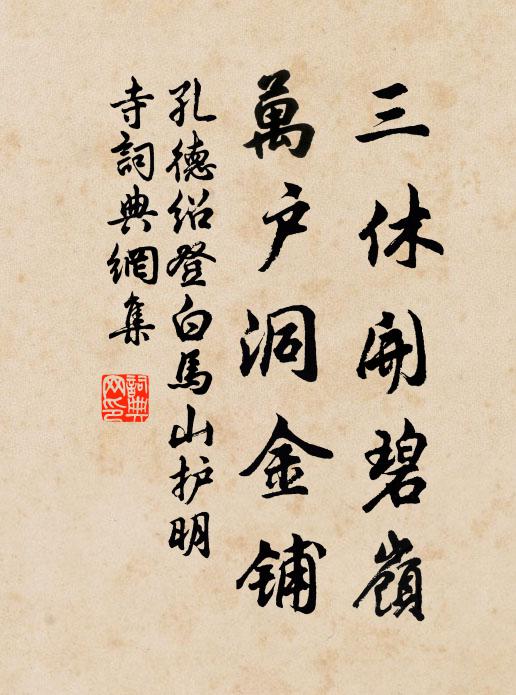 三休開碧嶺
萬户洞金鋪
孔德紹登白馬山护明
寺詞典網集
詞典
网印